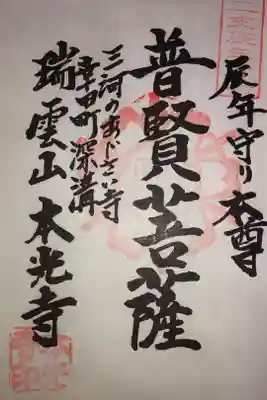 辰年守り本尊
普賢菩薩
三河のあじさい寺
幸田町深溝
瑞雲山本光寺